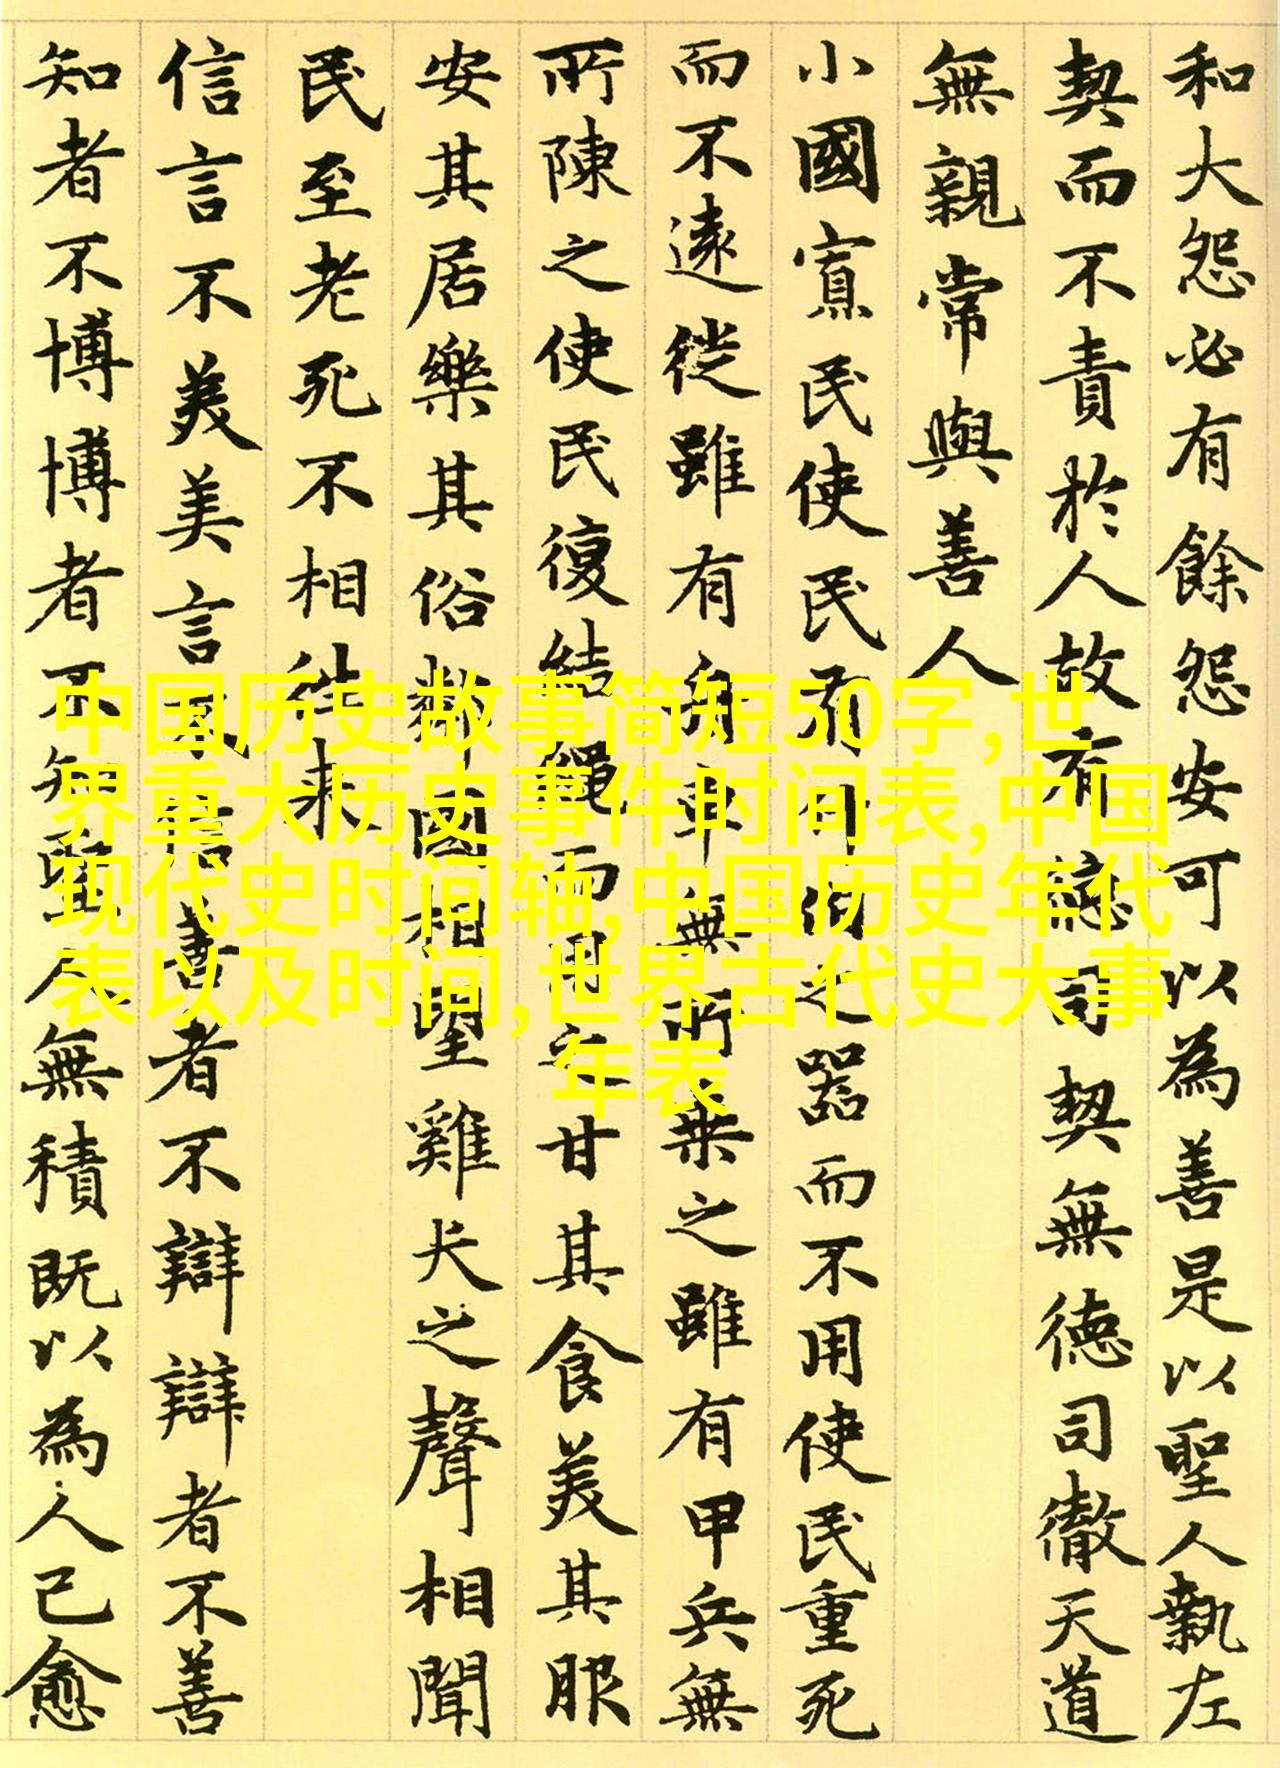 和大怨必有餘怨安可以為善是以聖人執左
契而不責於人故有德司契無德司徹天道
無親常與善人
小國寡民使民有什伯之器而不用使民重死
而不遠徙雖有舟車無所乗之雖有甲兵無
所陳之使民復結繩而用之甘其食美其服
安其居樂其俗鄰國相望雞犬之聲相聞
民至老死不相往来
信言不美美言不信善者不辯辯者不善
知者不博博者不知聖人無積既以為人己愈
中国历史故事简短50字,世
界重大历史事件时间表,中国
现代史时间轴,中国历史年代
表以及时间,世界古代史大事
年表